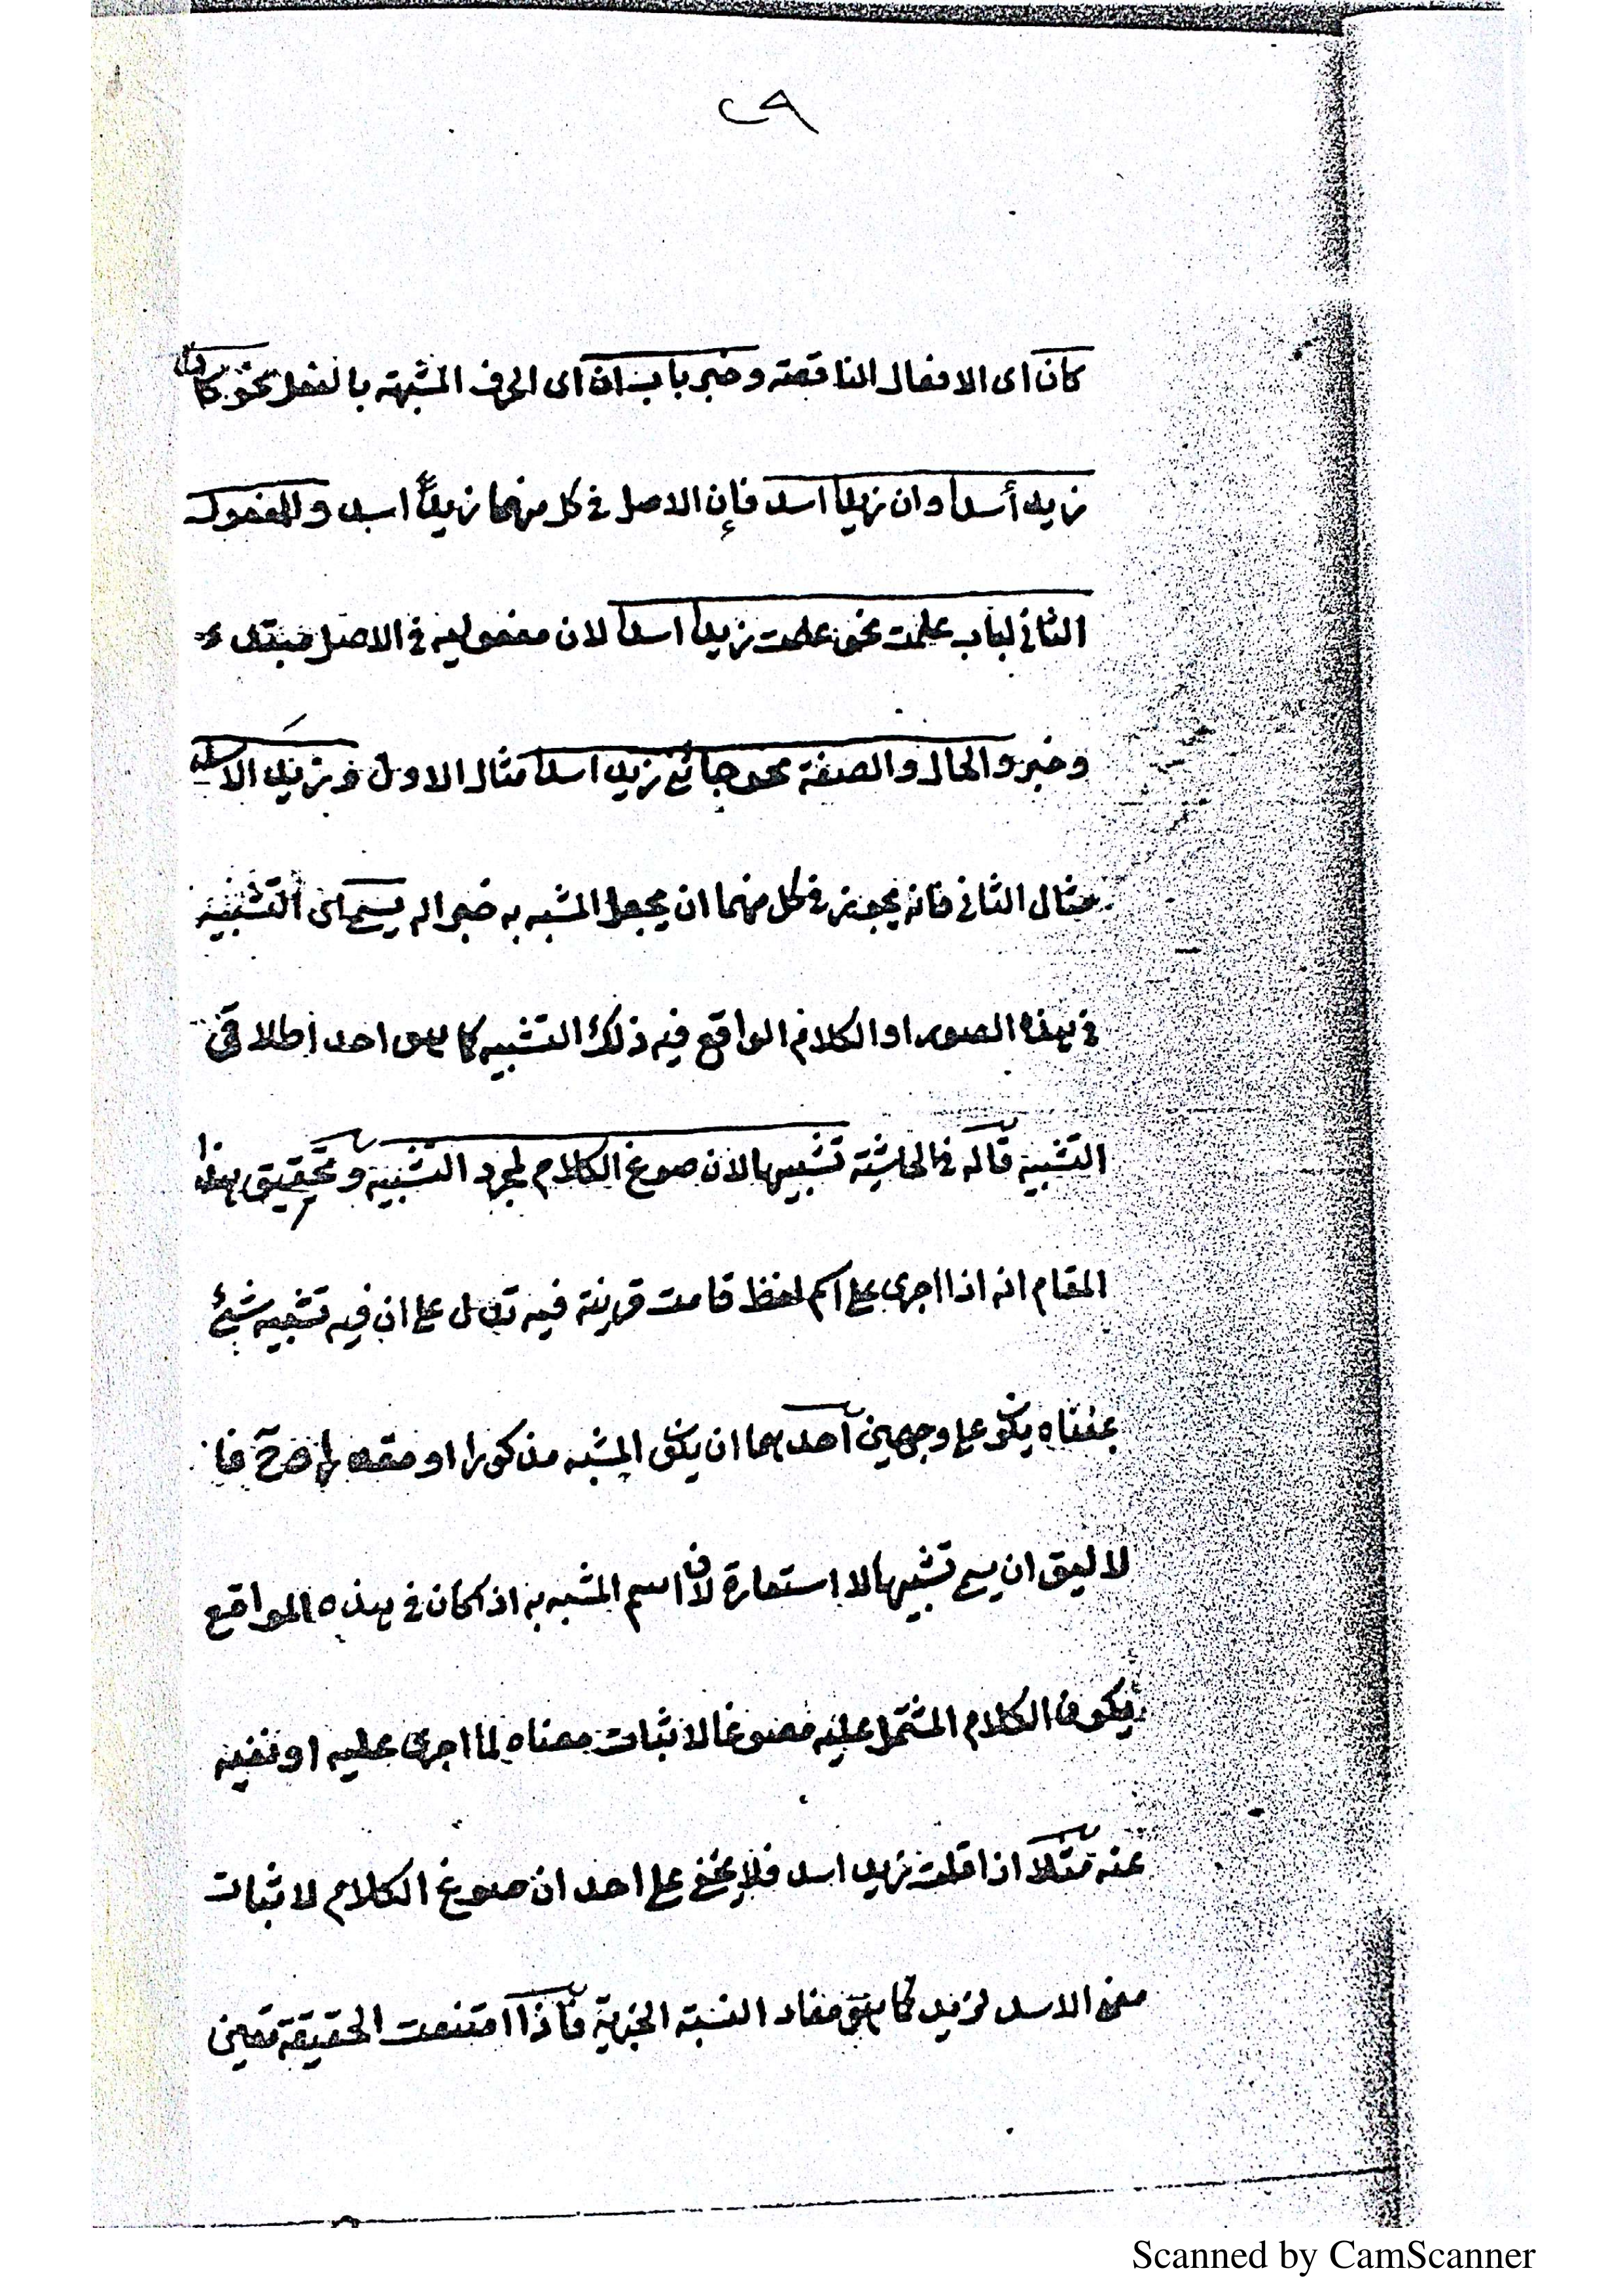 ٢٩
كان اى الافعال الناقصة وخبر باب ان اى الحرف المشبهة بالفعل نحو كان
زيد أسدا وان زيدا اسد فإن الاصل فى كل منهما زيد اسد والمفعول
الثانى لباب علمت نحو علمت زيدا اسدا لان مفعوليه فى الاصل مبتدء و
وخبر والحال والصفة نحو جائنى زيد اسدا مثال الاول و زيد الاسد
مثال الثانى فانه يجوز فى كل منهما ان يجعل المشبه به خبرا له يسمى اى التشبيه
فى هذه الصور او الكلام الواقع فيه ذلك التشبيه كما هو احد اطلاقى
التشبيه قاله فى الحاشية تشبيها لان صوغ الكلام لمجرد التشبيه وتحقيق هذا
المقام انه اذا اجرى على اسم لفظ قامت قرينة فيه تدل على ان فيه تشبيه شئ
بمعناه يكو على وجهين احدهما ان يكو المشبه مذكورا او مقد
لا ليق ان يسمى تشبيها لا استعارة لان اسم المشبه به اذ كان فى هذه المواقع
يكون الكلام المشتمل عليه مصوغا لاثبات معناه لما اجرى عليه او نفيه
عنه مثلا اذا قلت زيد اسد فلا يخفى على احد ان صوغ الكلام لاثبات
معنى الاسد لزيد كما هو مفاد النسبة الخبرية فاذا امتنعت الحقيقة تعين
Scanned by CamScanner